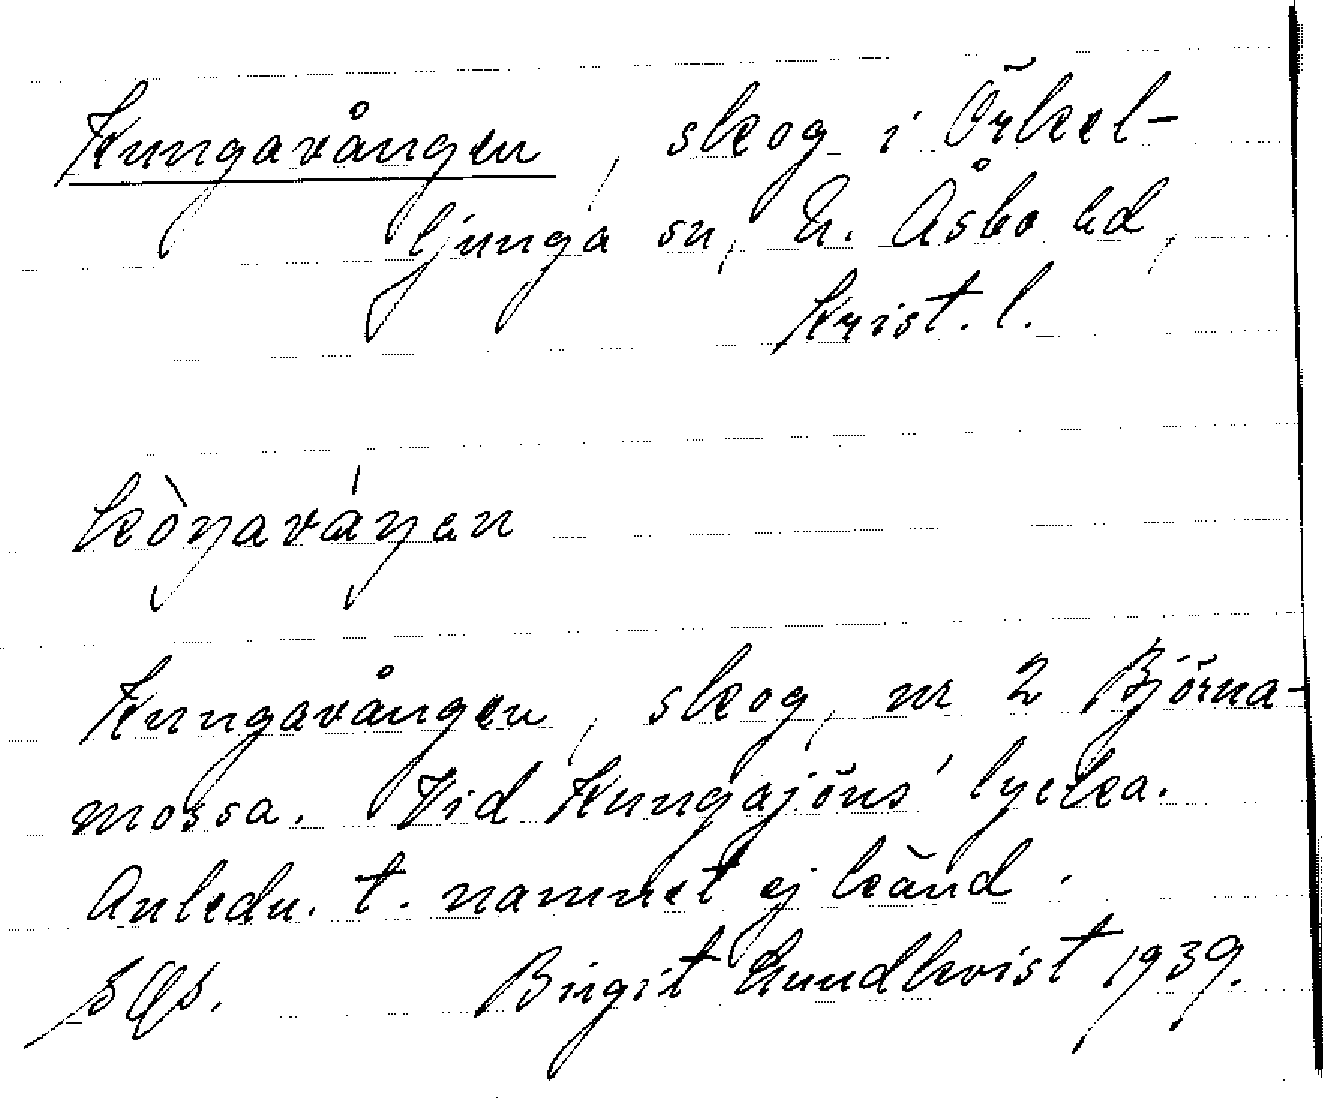 Kungavången, skog i Örkel-
ljunga sn, N. Åsbo hd,
Krist. l.
kòŋaváŋan
Kungavången, skog, nr 2 Björna-
mossa. Vid Kungajöns' lycka.
Anledn. t. namnet ej känd.
Birgit Lundkvist 1939.